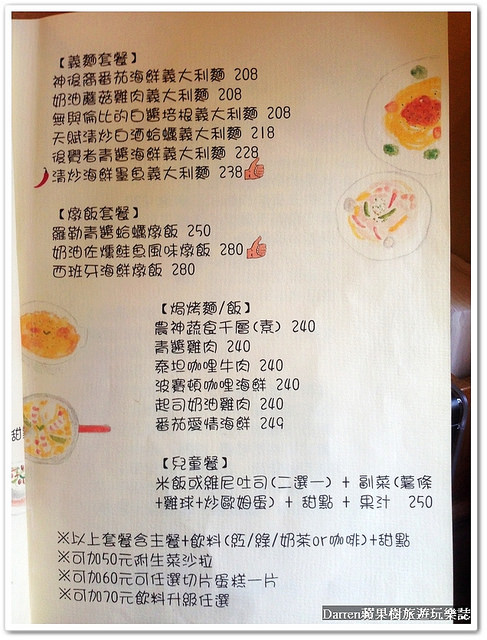 【義麵套餐】
神後裔番茄海鮮義大利麵 208
奶油蘑菇雞肉義大利麵 208
無與倫比的白醬培根義大利麵 208
天賦清炒白酒蛤蠣義大利麵 218
復興者青醬海鮮義大利麵 228
清炒海鮮墨魚義大利麵 238
【燉飯套餐】
羅勒青醬蛤蠣燉飯 250
奶油佐燻鮭魚風味燉飯 280
西班牙海鮮燉飯 280
【焗烤麵/飯】
農神蔬食千層(素) 240
青醬雞肉 240
泰坦咖哩牛肉 240
波賽頓咖哩海鮮 240
起司奶油雞肉 240
番茄愛情海鮮 249
【兒童餐】
米飯或維尼吐司(二選一) + 副菜(薯條
+雞球+炒歐姆蛋) + 甜點 + 果汁 250
※以上套餐含主餐+飲料(紅/綠/奶茶or咖啡)+甜點
※可加50元附生菜沙拉
※可加60元可任選切片蛋糕一片
※可加70元飲料升級任選
甜
Darren蘋果樹旅遊玩樂誌